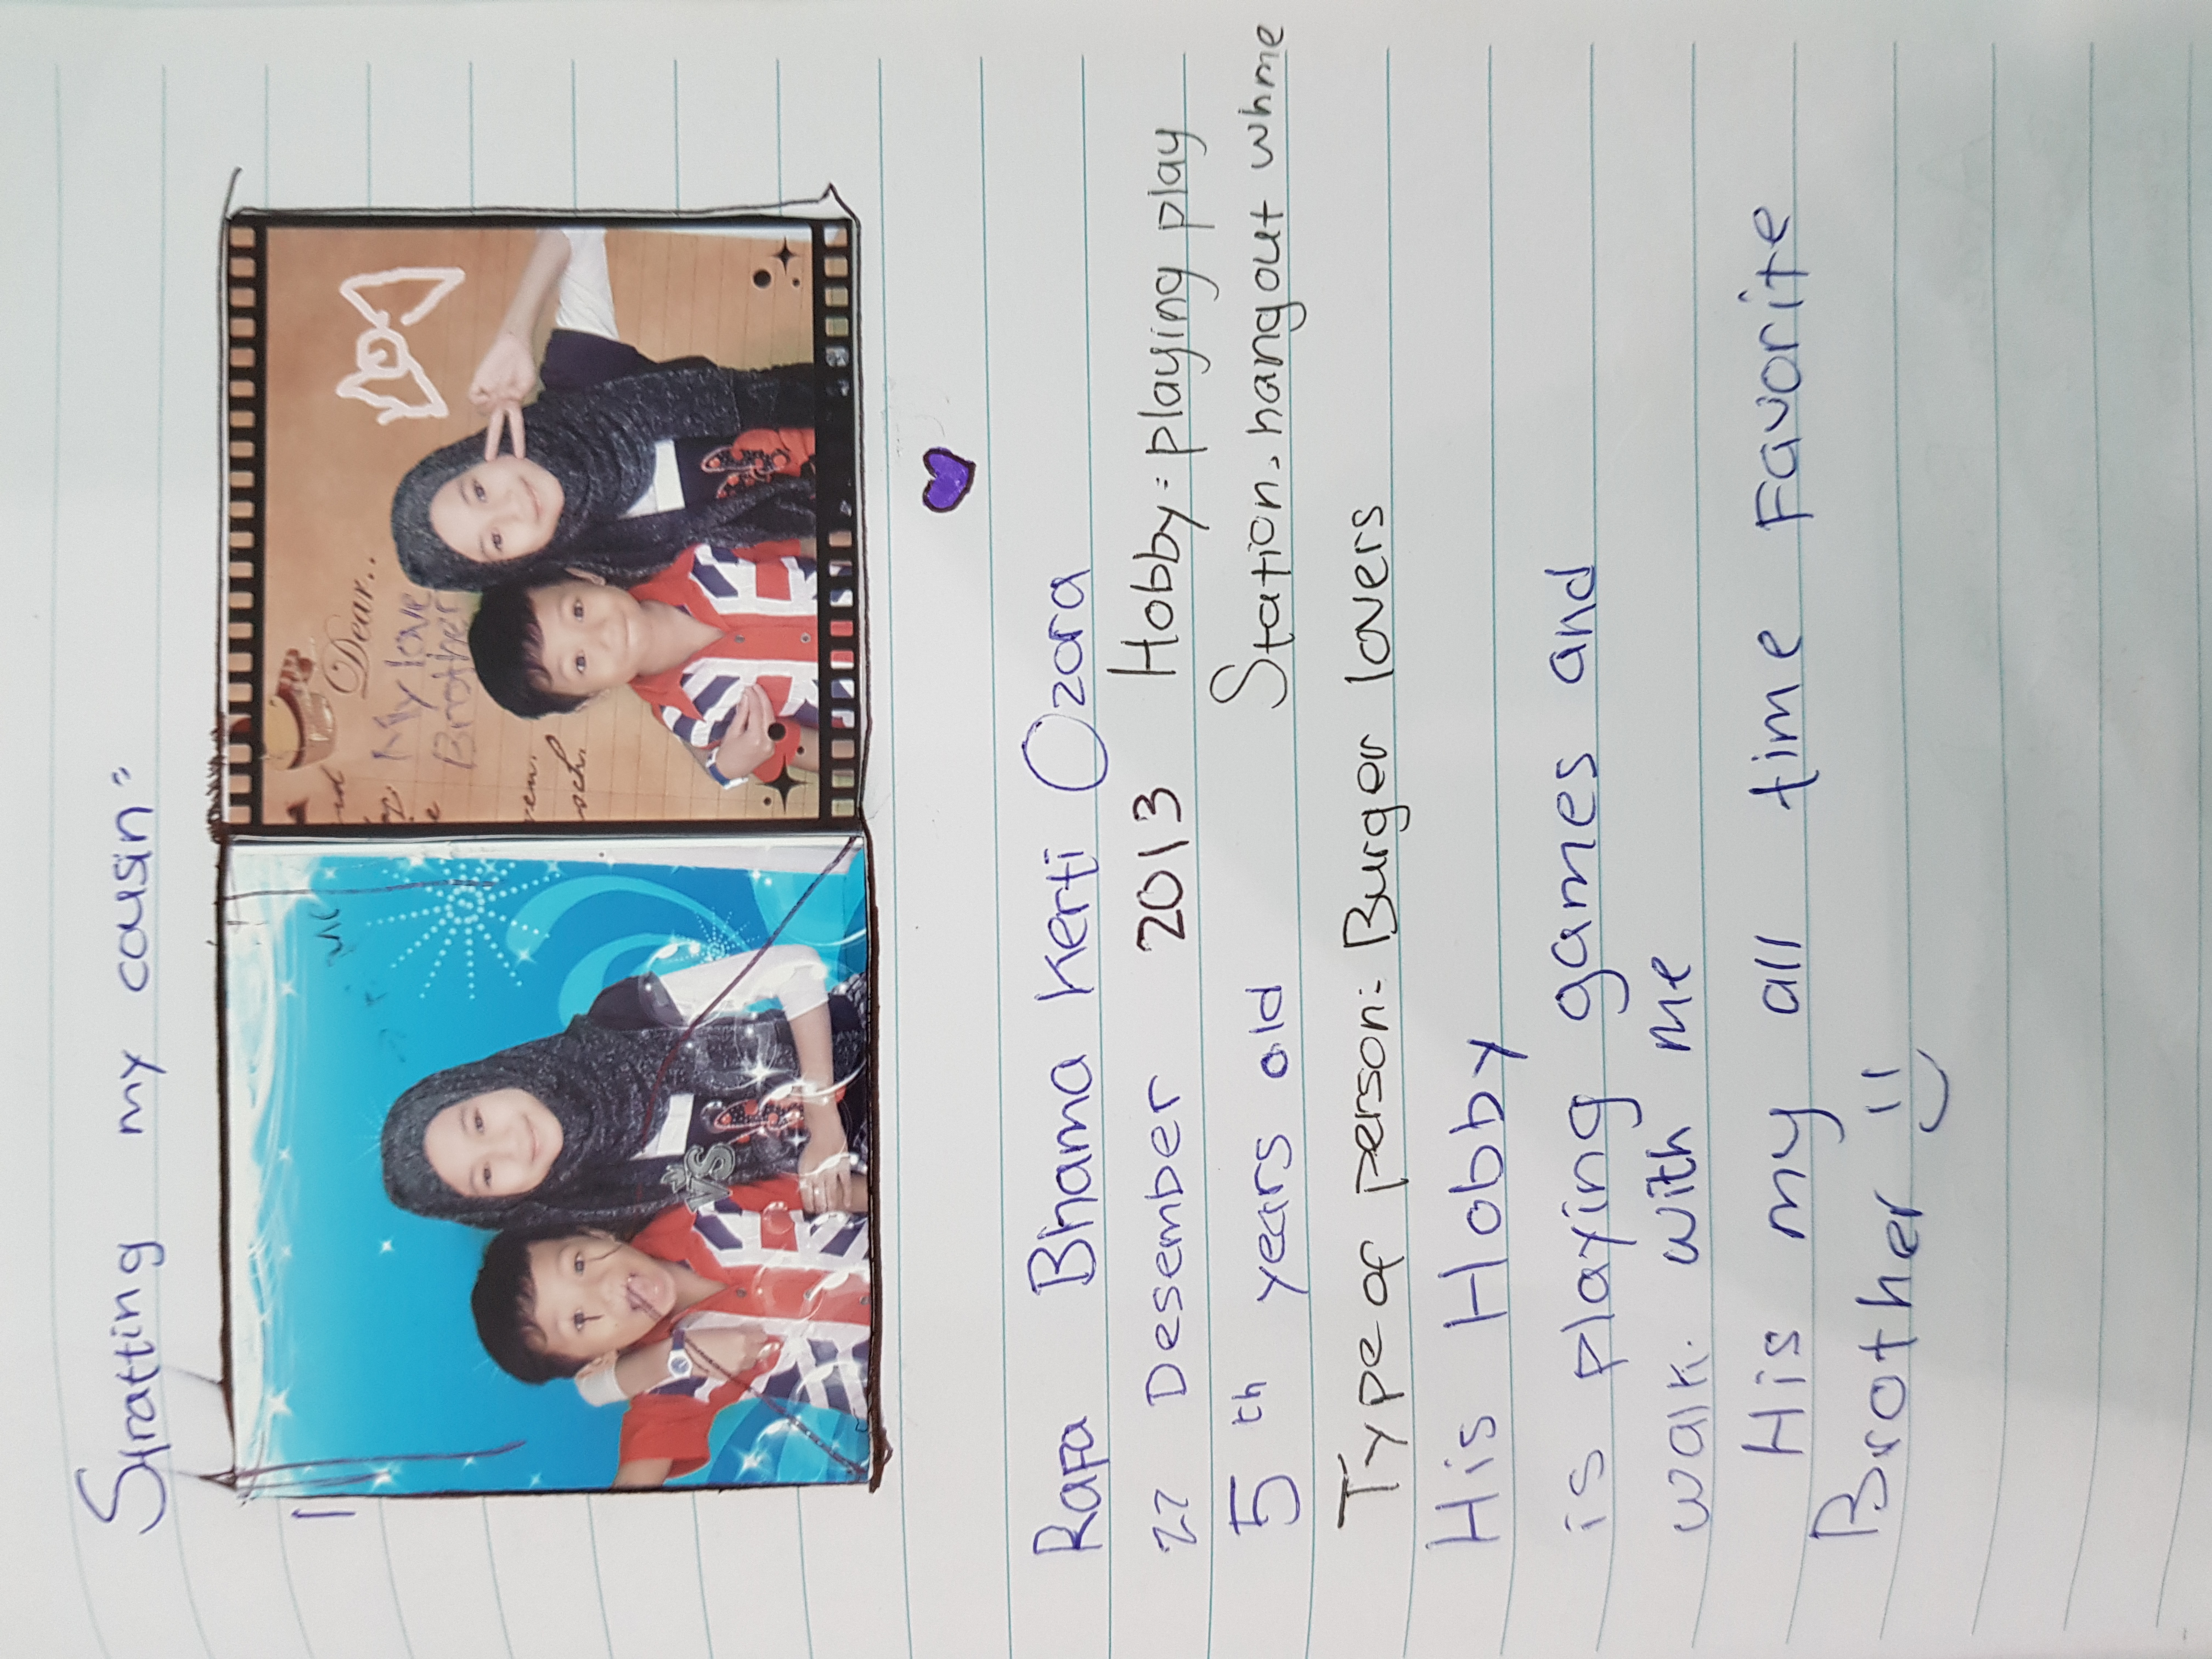 Stratting my cousin"
Dear..
My love
Brother
VS
Rafa Bhama Kerti Ozora
27 Desember 2013 Hobby: playing play
5 th years old Station: hangout whme
Type of person: Burger lovers
His Hobby
is playing games and
walk. with me
His my all time Favorite
Brother !!